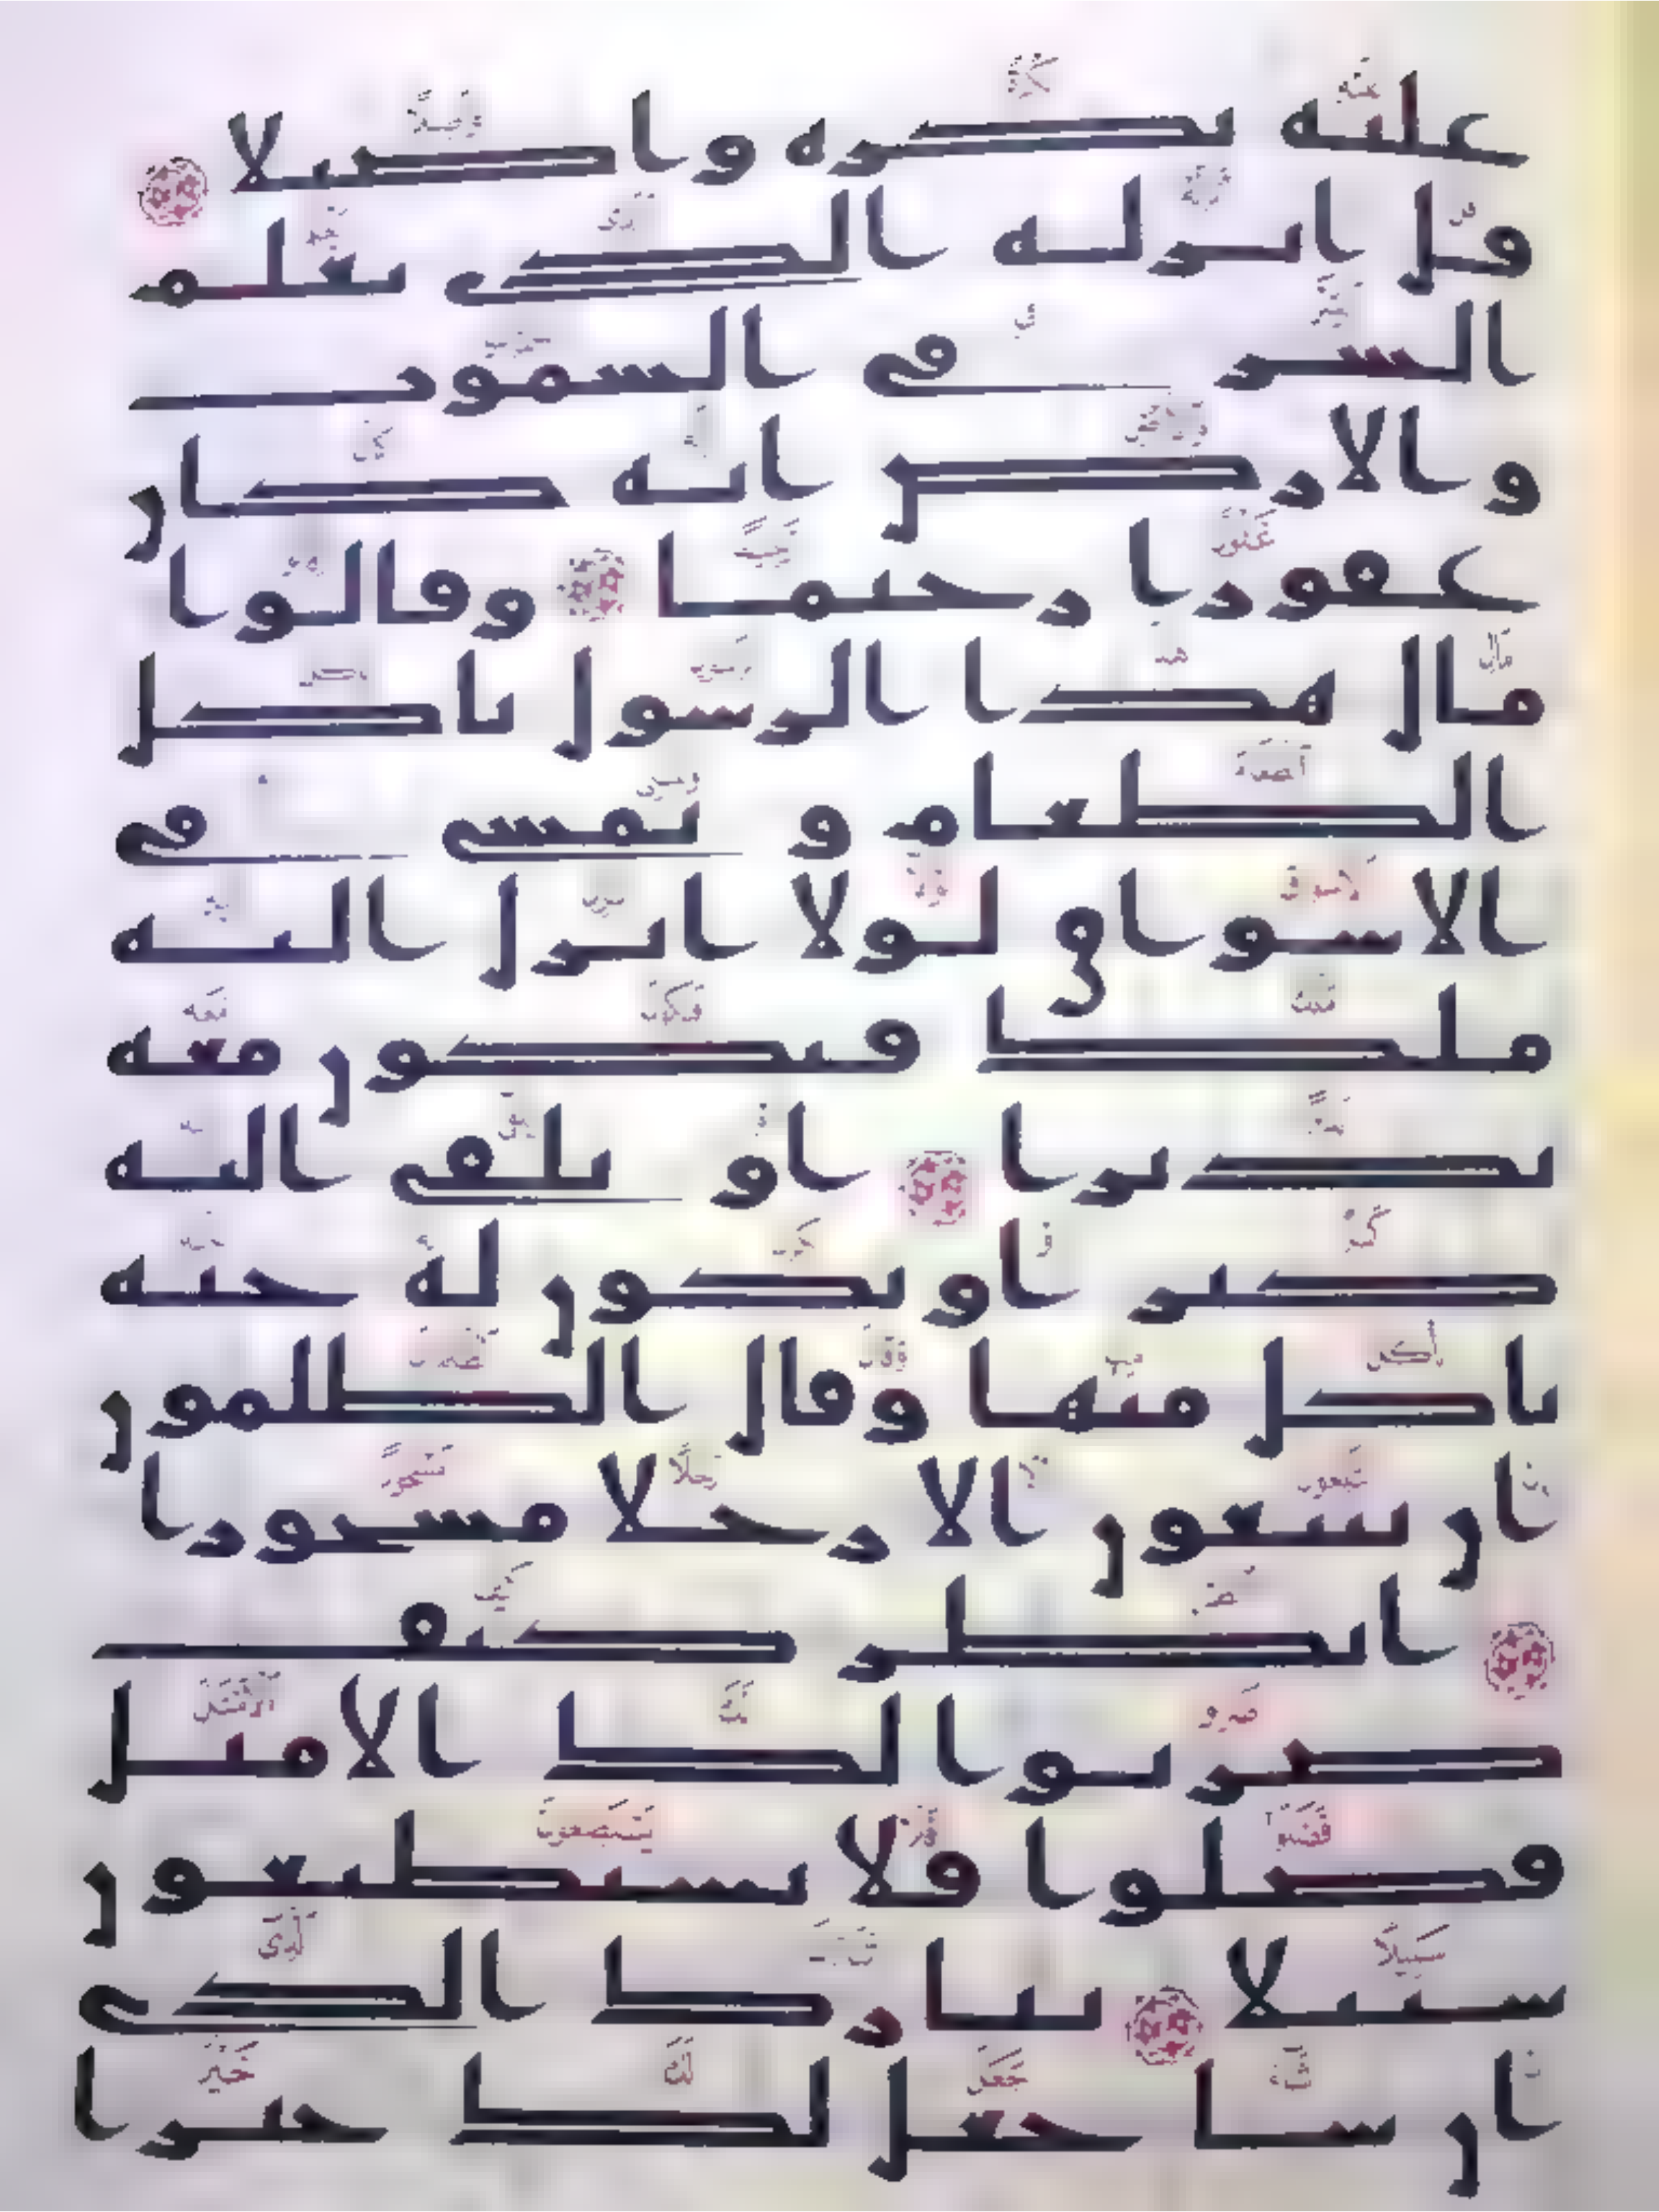 عليه بكرة واصيلا
قل انزله الذي يعلم
السر في السموت
والارض انه كان
غفورا رحيما وقالوا
مال هذا الرسول ياكل
الطعام و يمشي في
الاسواق لولا انزل اليه
ملك فيكون معه
نذيرا او يلقى اليه
كنز او تكون له جنة
ياكل منها وقال الظلمون
ان تتبعون الا رجلا مسحورا
انظر كيف
ضربوا لك الامثل
فضلوا فلا يستطيعون
سبيلا تبارك الذي
ان شا جعل لك خيرا